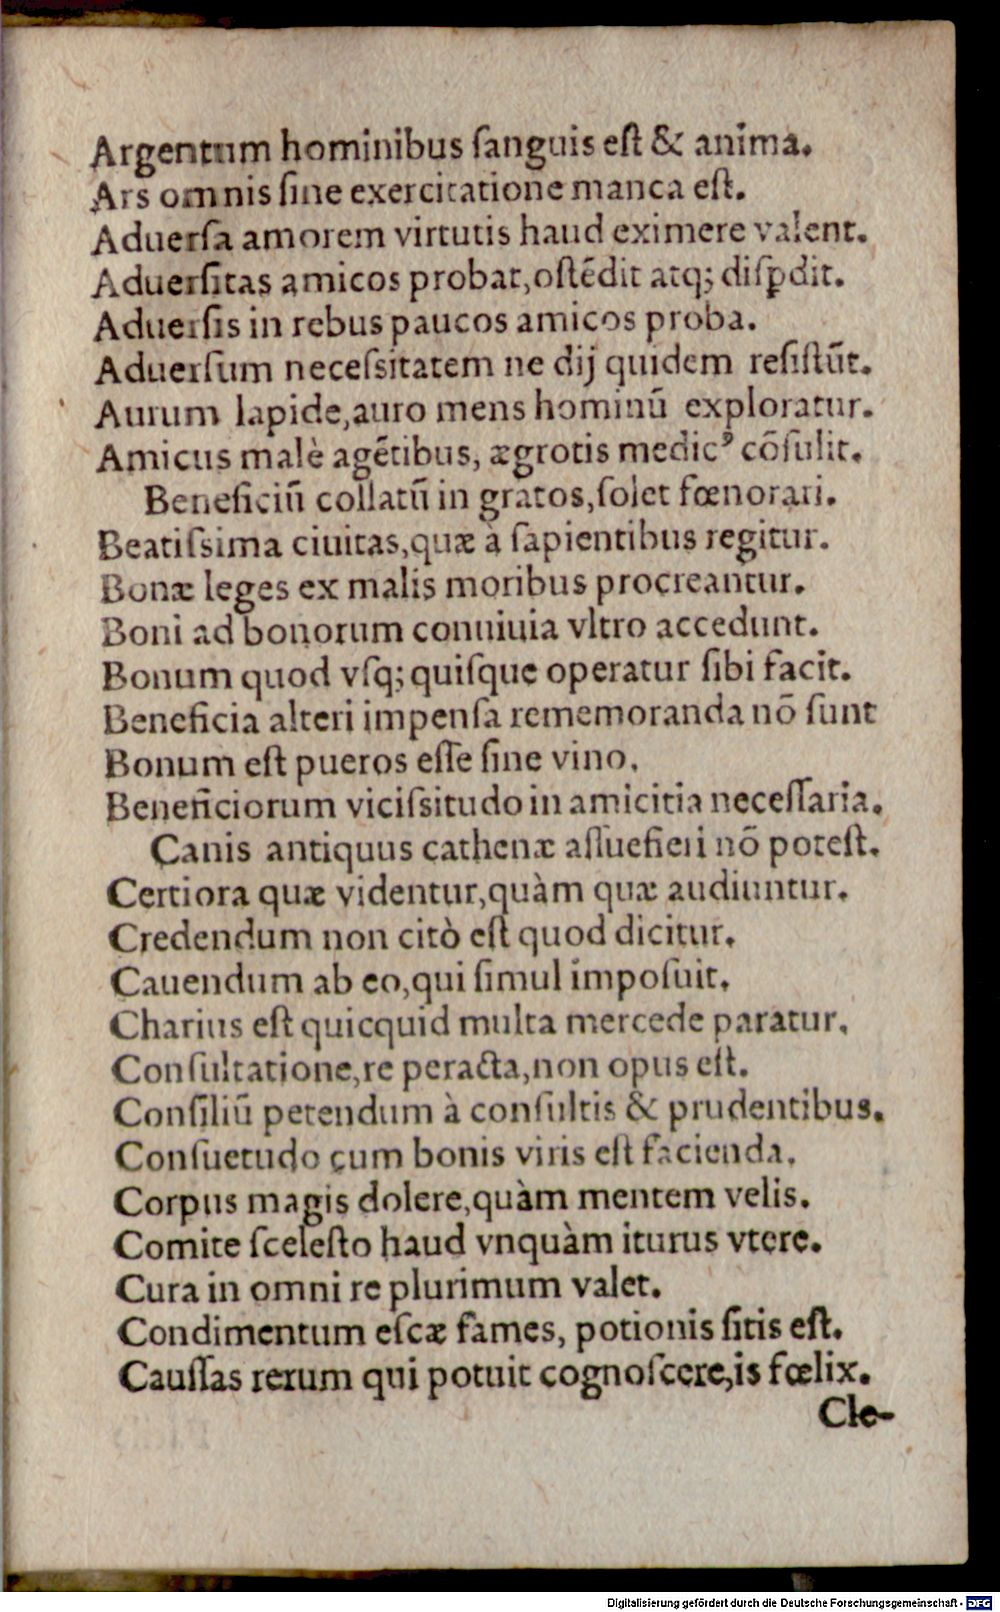 Argentum hominibus ſanguis eſt & anima.
Ars omnis ſine exercitatione manca eſt.
Aduerſa amorem virtutis haud eximere valent.
Aduerſitas amicos probat,oſtēdit atq; diſꝑdit.
Aduerſis in rebus paucos amicos proba.
Aduerſum neceſsitatem ne dij quidem reſiſtūt.
Aurum lapide,auro mens hominū exploratur.
Amicus malè agētibus, ægrotis medicꝰ cōſulit.
Beneficiū collatū in gratos,ſolet fœnorari.
Beatiſsima ciuitas,quæ à ſapientibus regitur.
Bonæ leges ex malis moribus procreantur.
Boni ad bonorum conuiuia vltro accedunt.
Bonum quod vſq; quiſque operatur ſibi facit.
Beneficia alteri impenſa rememoranda nō ſunt
Bonum eſt pueros eſſe ſine vino.
Beneficiorum viciſsitudo in amicitia neceſſaria.
Canis antiquus cathenæ aſſuefieri nō poteſt.
Certiora quæ videntur,quàm quæ audiuntur.
Credendum non citò eſt quod dicitur.
Cauendum ab eo,qui ſimul impoſuit.
Charius eſt quicquid multa mercede paratur.
Conſultatione,re peracta,non opus eſt.
Conſiliū petendum à conſultis & prudentibus.
Conſuetudo cum bonis viris eſt facienda.
Corpus magis dolere,quàm mentem velis.
Comite ſceleſto haud vnquàm iturus vtere.
Cura in omni re plurimum valet.
Condimentum eſcæ fames, potionis ſitis eſt.
Cauſſas rerum qui potuit cognoſcere,is fœlix.
Cle-
Digitalisierung gefördert durch die Deutsche Forschungsgemeinschaft - DFG